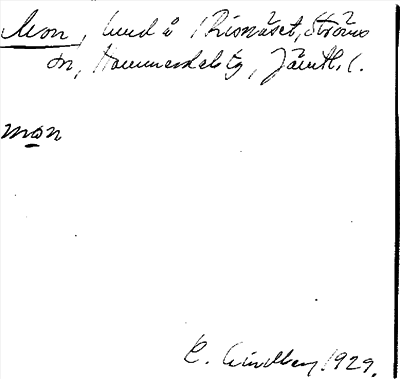 Mon, lund å Risnäset, Ströms
sn, Hammerdals tg, Jämtl. l.
mon
E. Lindberg 1929.